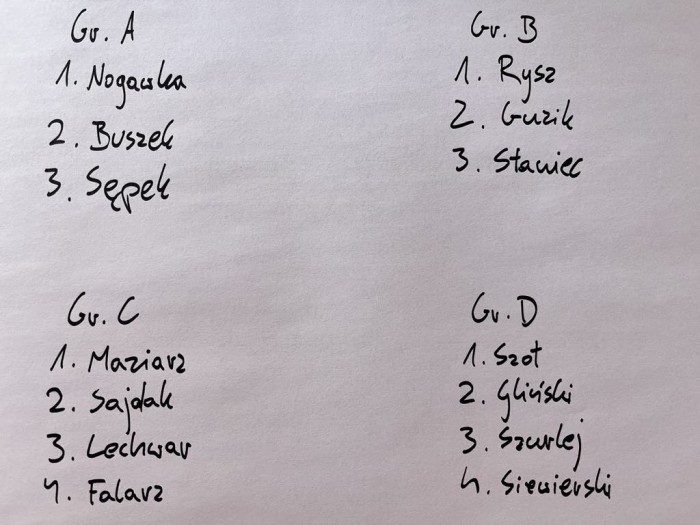 Gr. A
1. Nogawka
2. Buszek
3. Sępek
Gr. B
1. Rysz
2. Guzik
3. Stawiec
Gr. C
1. Maziarz
2. Sajdak
3. Lechwar
4. Falarz
Gr. D
1. Szot
2. Gliński
3. Szurlej
4. Siewierski